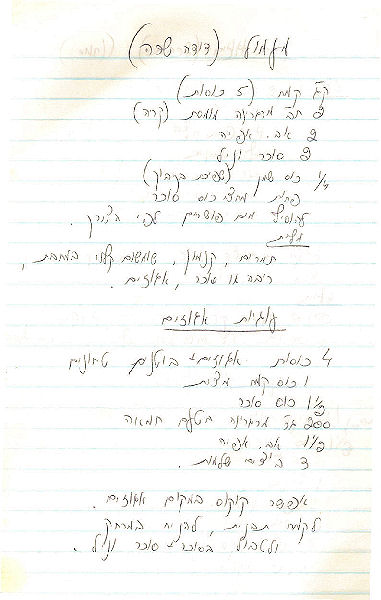 מעמול (דודה שפה)
קג קמח (5 כוסות)
2 חב מרגרינה מומסת (קרה)
2 אב. אפיה
2 סוכר וניל
1/2 כוס שמן (שפיכת בקהיק)
פחות מחצי כוס סוכר
להוסיף מים פושרים לפי הצורך.
מלית
תמרים, קנמון, שומשום קלוי במחבת,
ריבה או סוכר, אגוזים.
עוגיות אגוזים
4 כוסות אגוזים או בוטנים טחונים
1 כוס קמח מצות
1 1/2 כוס סוכר
200 גר מרגרינה בטעם חמאה
1 1/2 אב. אפיה
3 ביצים שלמות.
אפשר קוקוס במקום אגוזים.
לקחת תבנית, להניח במרחק
ולטבול בסוכר או סוכר וניל.